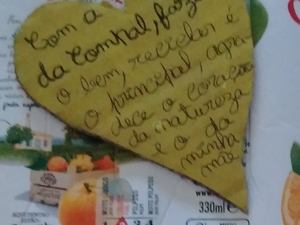 Com a
da Compal, faça
o bem, reciclar é
o principal, agra-
dece o coração
da natureza
e o da
minha
mãe
330ml